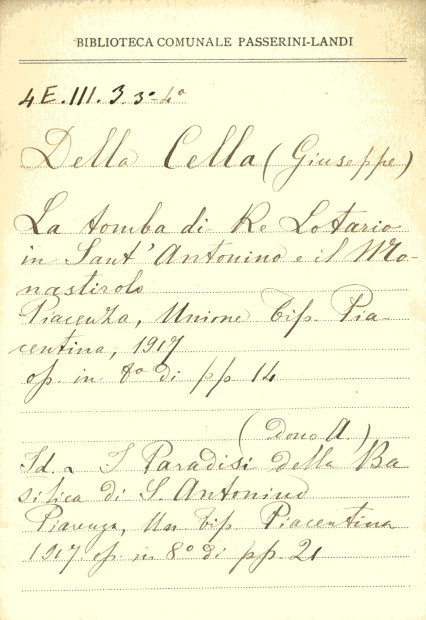 BIBLIOTECA COMUNALE PASSERINI-LANDI
4E.III.3.3º-4º
Della Cella (Giuseppe)
La tomba di Re Lotario
in Sant'Antonino e il Mo-
nastirolo
Piacenza, Unione Tip. Pia-
centina, 1917
op. in 8º di pp 14
(Dono A.)
Id. - I Paradisi della Ba
silica di S. Antonino
Piacenza, Un Tip. Piacentina
1917. op. in 8º di pp. 21